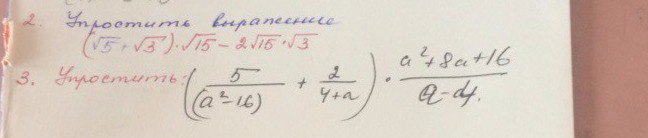 2. Упростить выражение
(√5 + √3)·√15 - 2√15·√3
3. Упростить: (5/(a²-16) + 2/(4+a)) · (a²+8a+16)/(a-4).